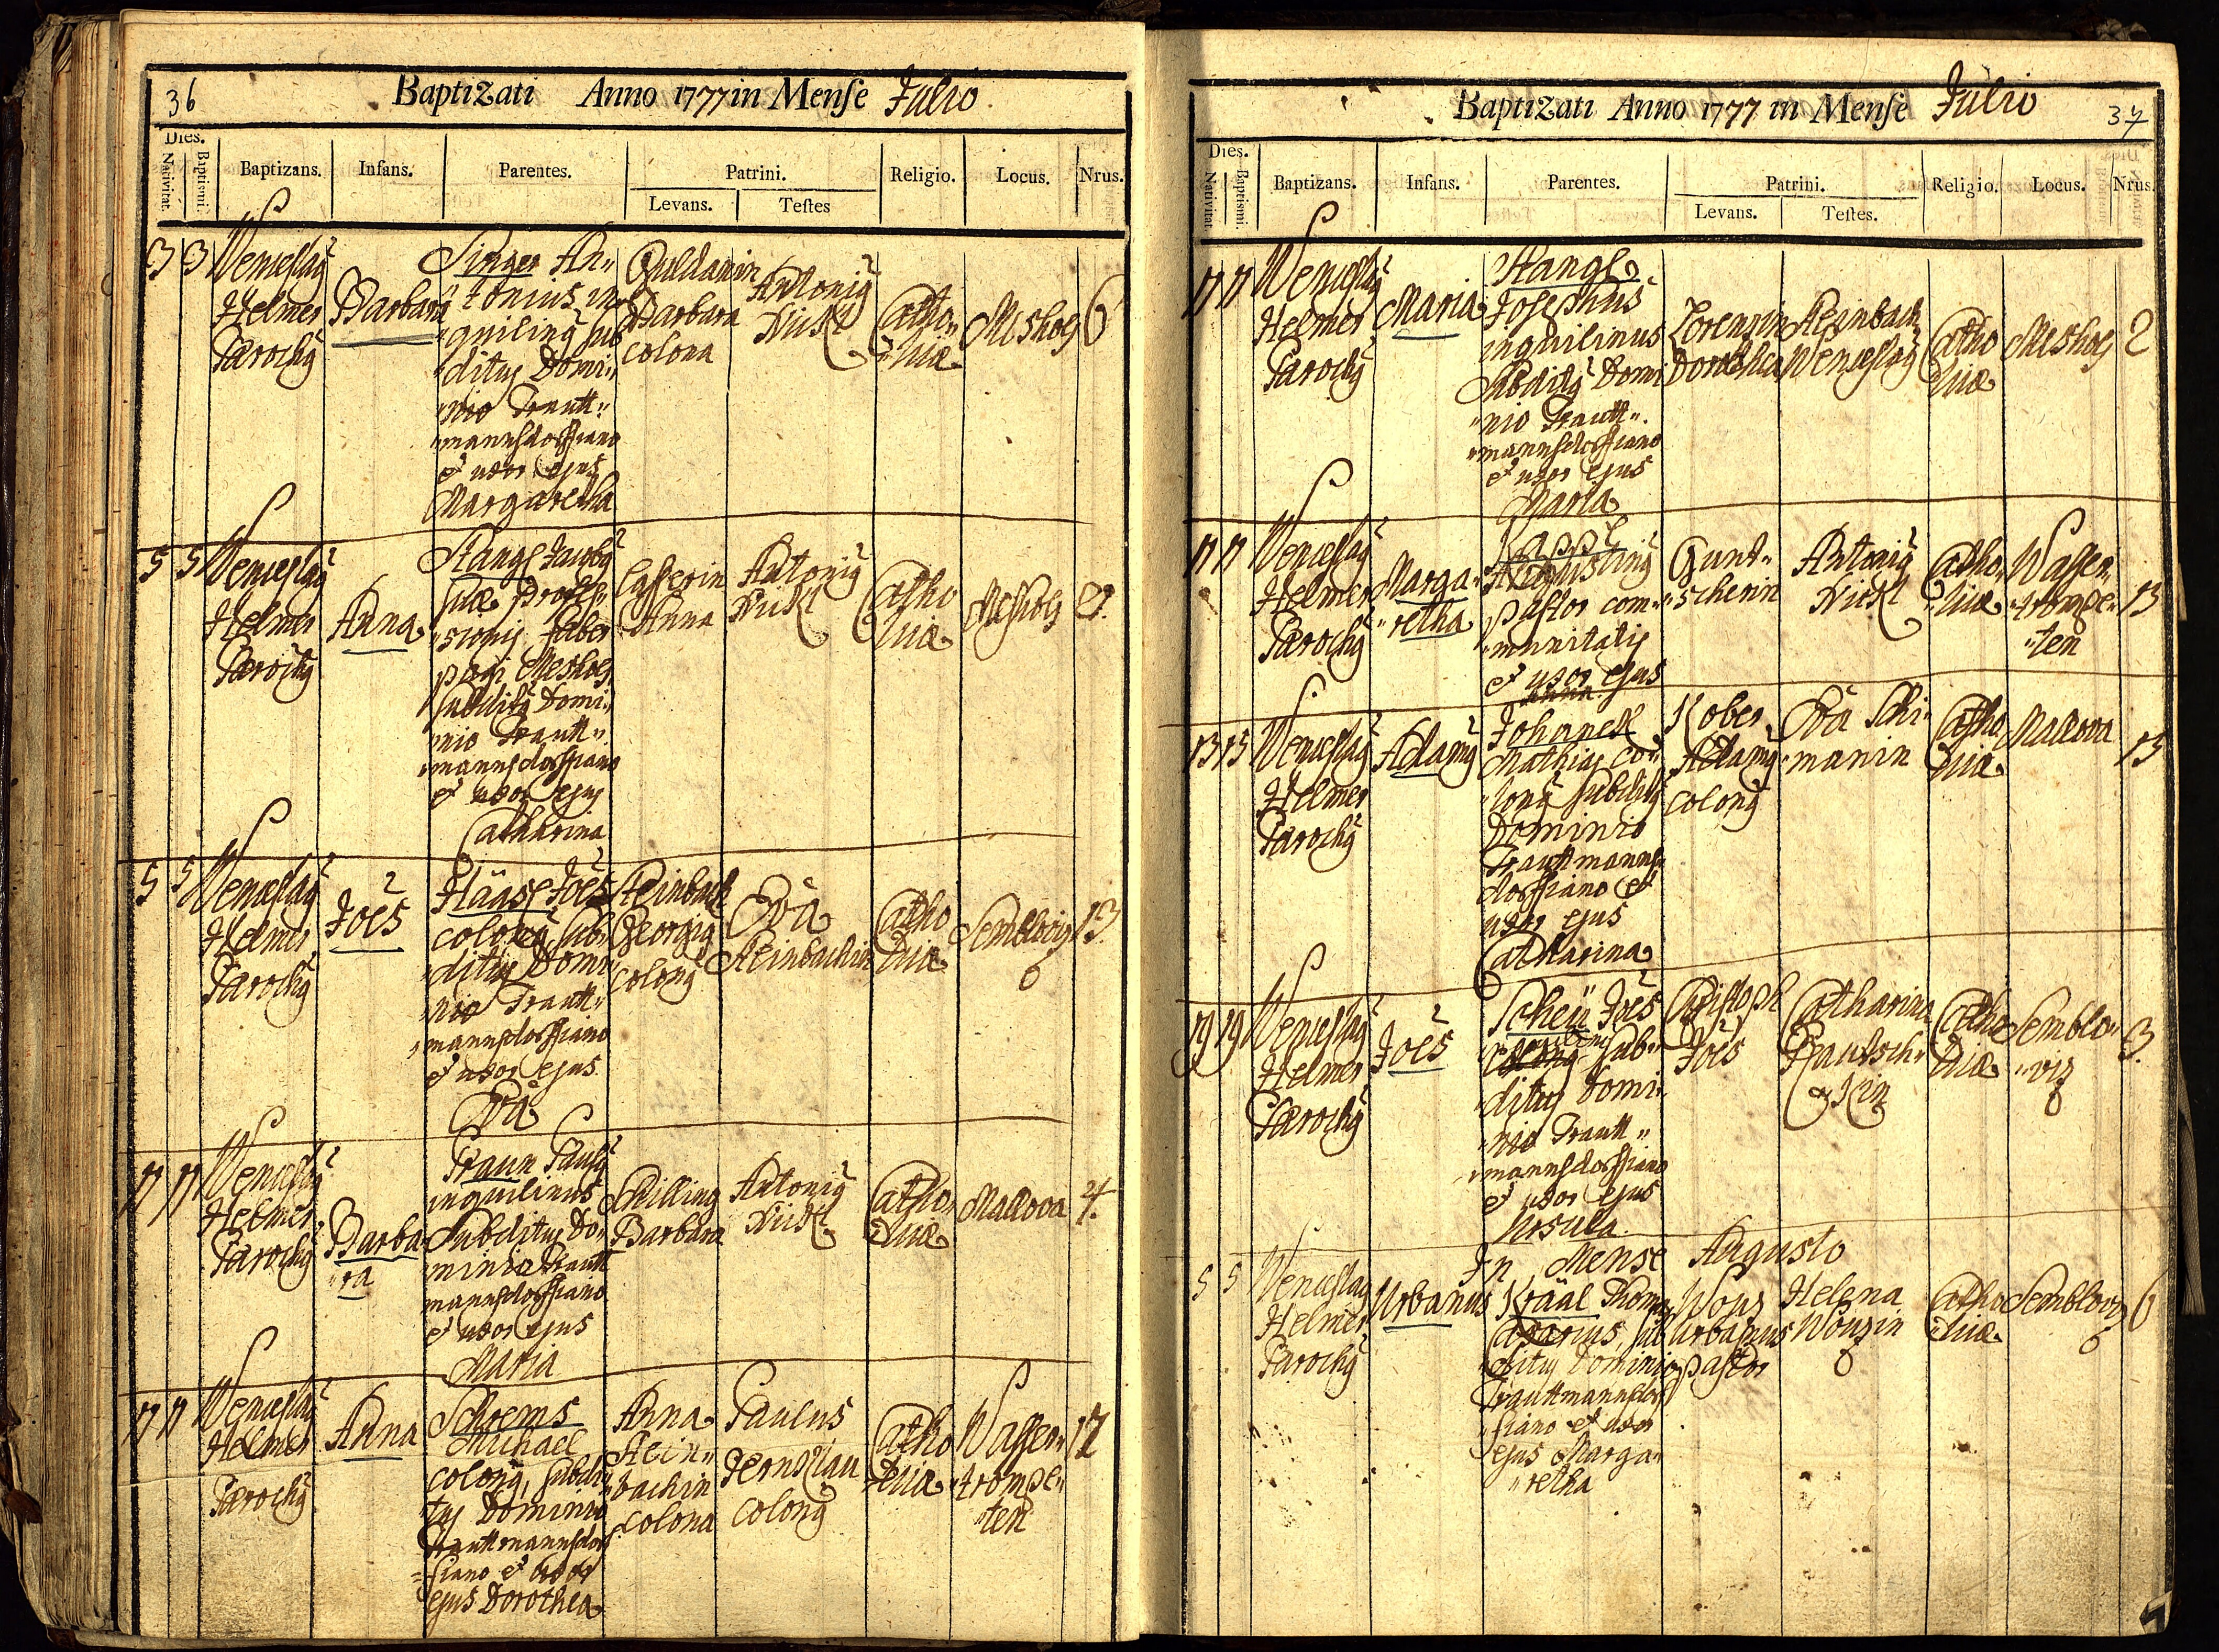 36
Baptizati Anno 1777 in Mense Julio
Dies.
Nativitat.
Baptismi.
Baptizans.
Infans.
Parentes.
Patrini.
Levans.
Testes
Religio.
Locus.
Nrus.
3 3
Wenceslaus
Helmer
Parochus
Barbara
Singer An"
"tonius in"
"quilinus sub"
"ditus Domi"
"nio Trautt"
"mannsdorffiano
et uxor ejus
Margaretha
Barbara
colona
Antonius
Nickl
Catho"
"licae
Mesholz
6
5 5
Wenceslaus
Helmer
Parochus
Anna
Stangl Jacobus
suae profes"
"sionis Faber
pagi Mesholz
subditus Domi"
"nio Trautt"
"mannsdorffiano
et uxor ejus
Catharina
Casserin
Anna
Antonius
Nickl
Catho
licae
Mesholz
5 5
Wenceslaus
Helmer
Parochus
Joes
Hääsl Joes
colonus sub"
"ditus Domi"
"nio Trautt"
"mannsdorffiano
et uxor ejus
Eva
Steinbach
Georgius
colonus
Eva
Steinbachin
Catho
licae
Sembloviz
13.
17 17
Wenceslaus
Helmer
Parochus
Barba"
"ra
Traun Paulus
inquilinus
Subditus Do"
minio Trautt
mannsdorffiano
et uxor ejus
Maria
Schilling
Barbara
Antonius
Nickl
Catho"
licae
Mallova
4.
17 17
Wenceslaus
Helmer
Parochus
Anna
Schrems
Michael
colonus, subdi"
tus Dominio
Trauttmannsdorf
"fiano et uxor
ejus Dorothea
Anna
Stein"
"bachin
colona
Paulus
colonus
Catho
licae
Wasser"
"trompe"
"ten
17
Baptizati Anno 1777 in Mense Julio
37
Dies.
Nativitat.
Baptismi.
Baptizans.
Infans.
Parentes.
Patrini.
Levans.
Testes.
Religio.
Locus.
Nrus.
17 17
Wenceslaus
Helmer
Parochus
Maria
Stangl
Josephus
inquilinus
Subditus Domi
"nio Trautt"
"mannsdorffiano
et uxor ejus
Maria
Lorenzin
Dorothea
Steinbach
Wenceslaus
Catho
licae
Mesholz
2
17 17
Wenceslaus
Helmer
Parochus
Marga"
"retha
Augustinus
pastor com"
"munitatis
et uxor ejus
Anna
Gunt"
"scherin
Antonius
Nickl
Catho"
"licae
Wasser"
"trompe"
"ten
13
13 13
Wenceslaus
Helmer
Parochus
Adamus
Johanneß
Mathias co"
"lonus subditus
Dominio
Trauttmanns"
dorffiano et
uxor ejus
Catharina
Kober
Adamus
colonus
Eva Schi"
"manin
Catho
licae
Mallova
13
19 19
Wenceslaus
Helmer
Parochus
Joes
Scheü Joes
sub"
"ditus Domi"
"nio Trautt"
"mannsdorffiano
et uxor ejus
Ursula.
Christoph
Joes
Catharina
Catho
licae
Semblo"
"viz
3.
In Mense Augusto
5 5
Wenceslaus
Helmer
Parochus
Urbanus
Krääl Thomas
Casarius, sub
"ditus Dominio
Trauttmannsdorf
"fiano et uxor
ejus Marga"
"retha
Wonz
Urbanus
pastor
Helena
Wonzin
Catho
licae
Sembloviz
6